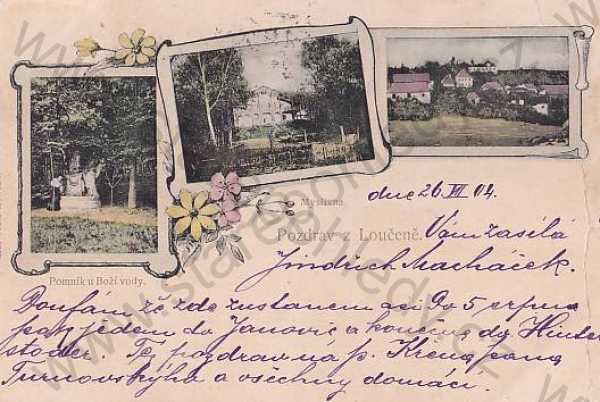 Pomník u Boží vody.
Myslivna
Pozdrav z Loučeně.
dne 26 VII 04.
Vám zasílá
Jindřich Macháček.
Doufám že zde zustanem asi do 5 srpna
pak jedem do Janovic a konečně do Hinter
stoder. Též pozdrav na p. Krena pana
Turnovskýho a všechny domácí.